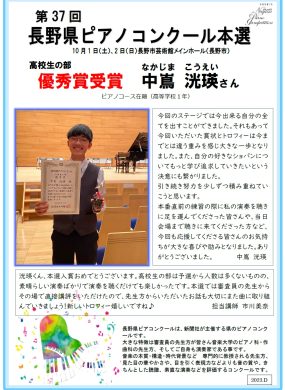 第37回
長野県ピアノコンクール本選
10月1日(土)、2日(日)長野市芸術館メインホール(長野市)
高校生の部
なかじま こうえい
優秀賞受賞 中嶌 洸瑛さん
ピアノコース在籍(高等学校1年)
今回のステージでは今出来る自分の全
てを出すことができました。それもあって
今回いただいた賞状とトロフィーは今ま
でとは違う重みを感じ大きな一歩となり
ました。また、自分の好きなショパンにつ
いてもっと学び追求していきたいという
決意にも繋がりました。
引き続き努力を少しずつ積み重ねてい
こうと思います。
本番直前の練習の際に私の演奏を聴き
に足を運んでくださった皆さんや、当日
会場まで聴きに来てくださった方など、
今回も応援してくださる皆さんのお気持
ちが大きな喜びや励みとなりました。あり
がとうございました。 中嶌 洸瑛
洸瑛くん、本選入賞おめでとうございます。高校生の部は予選から人数は多くないものの、
素晴らしい演奏ばかりで演奏を聴くだけでも楽しかったです。本選では審査員の先生から
その場で直接講評をいただけたので、先生方からいただいたお話も大切にまた曲に取り組
んでいきましょう!新しいトロフィー嬉しいですね♪ 担当講師 市川美奈
長野県ピアノコンクールは、新聞社が主催する県のピアノコンクー
ルです。
大きな特徴は審査員の先生方が皆さん音楽大学のピアノ科・作
曲科の先生方、そしてご自身も演奏家である事です。
音楽の本質・構造・時代背景など 専門的に教授される先生方、
見た目の華やかさや、目を引く表現だけでなくより曲の質や、き
ちんとした読譜、楽式的な演奏などを評価するコンクールです。
2023.D